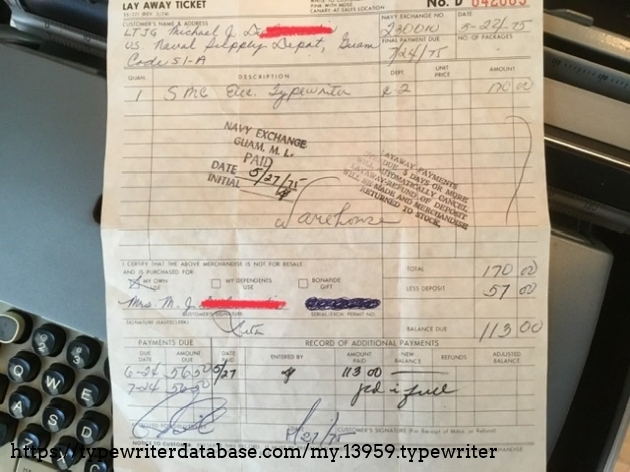 LAY AWAY TICKET
PINK-WITH MDSE
CANARY-AT SALES LOCATION
No. D 042005
CUSTOMER'S NAME & ADDRESS
NAVY EXCHANGE NO.
DATE
LTJG Michael J.
230010
5-27-75
US Naval Supply Depot, Guam
FINAL PAYMENT DUE
NO. OF PACKAGES
Code 51-A
7/24/75
QUAN. DESCRIPTION DEPT. UNIT PRICE AMOUNT
1 SMC Elec. Typewriter c 2 170 00
NAVY EXCHANGE
GUAM, M. I.
PAID
DATE 5/27/75
INITIAL
LAYAWAY PAYMENTS
PAST DUE 5 DAYS OR MORE
WILL AUTOMATICALLY CANCEL
LAYAWAY-REFUND OF DEPOSIT
WILL BE MADE AND MERCHANDISE
RETURNED TO STOCK.
Warehouse
I CERTIFY THAT THE ABOVE MERCHANDISE IS NOT FOR RESALE.
AND IS PURCHASED FOR
MY OWN USE
MY DEPENDENTS USE
BONAFIDE GIFT
TOTAL 170 00
LESS DEPOSIT 57 00
BALANCE DUE 113 00
Mrs. M. J.
CUSTOMER'S SIGNATURE
SERIAL/EXCH. PERMIT NO.
SIGNATURE (SALESCLERK)
PAYMENTS DUE
RECORD OF ADDITIONAL PAYMENTS
DUE DATE AMOUNT DUE DATE PAID ENTERED BY AMOUNT PAID NEW BALANCE REFUNDS ADJUSTED BALANCE
6-24 56 50 5/27 113 00
7-24 56 50 pd in full
5/27/75
CUSTOMER'S SIGNATURE (For Receipt of Mdse. or Refund)
NOTICE TO CUSTOMER
MERCHANDISE
Q W E
A S D
https://typewriterdatabase.com/my.13959.typewriter